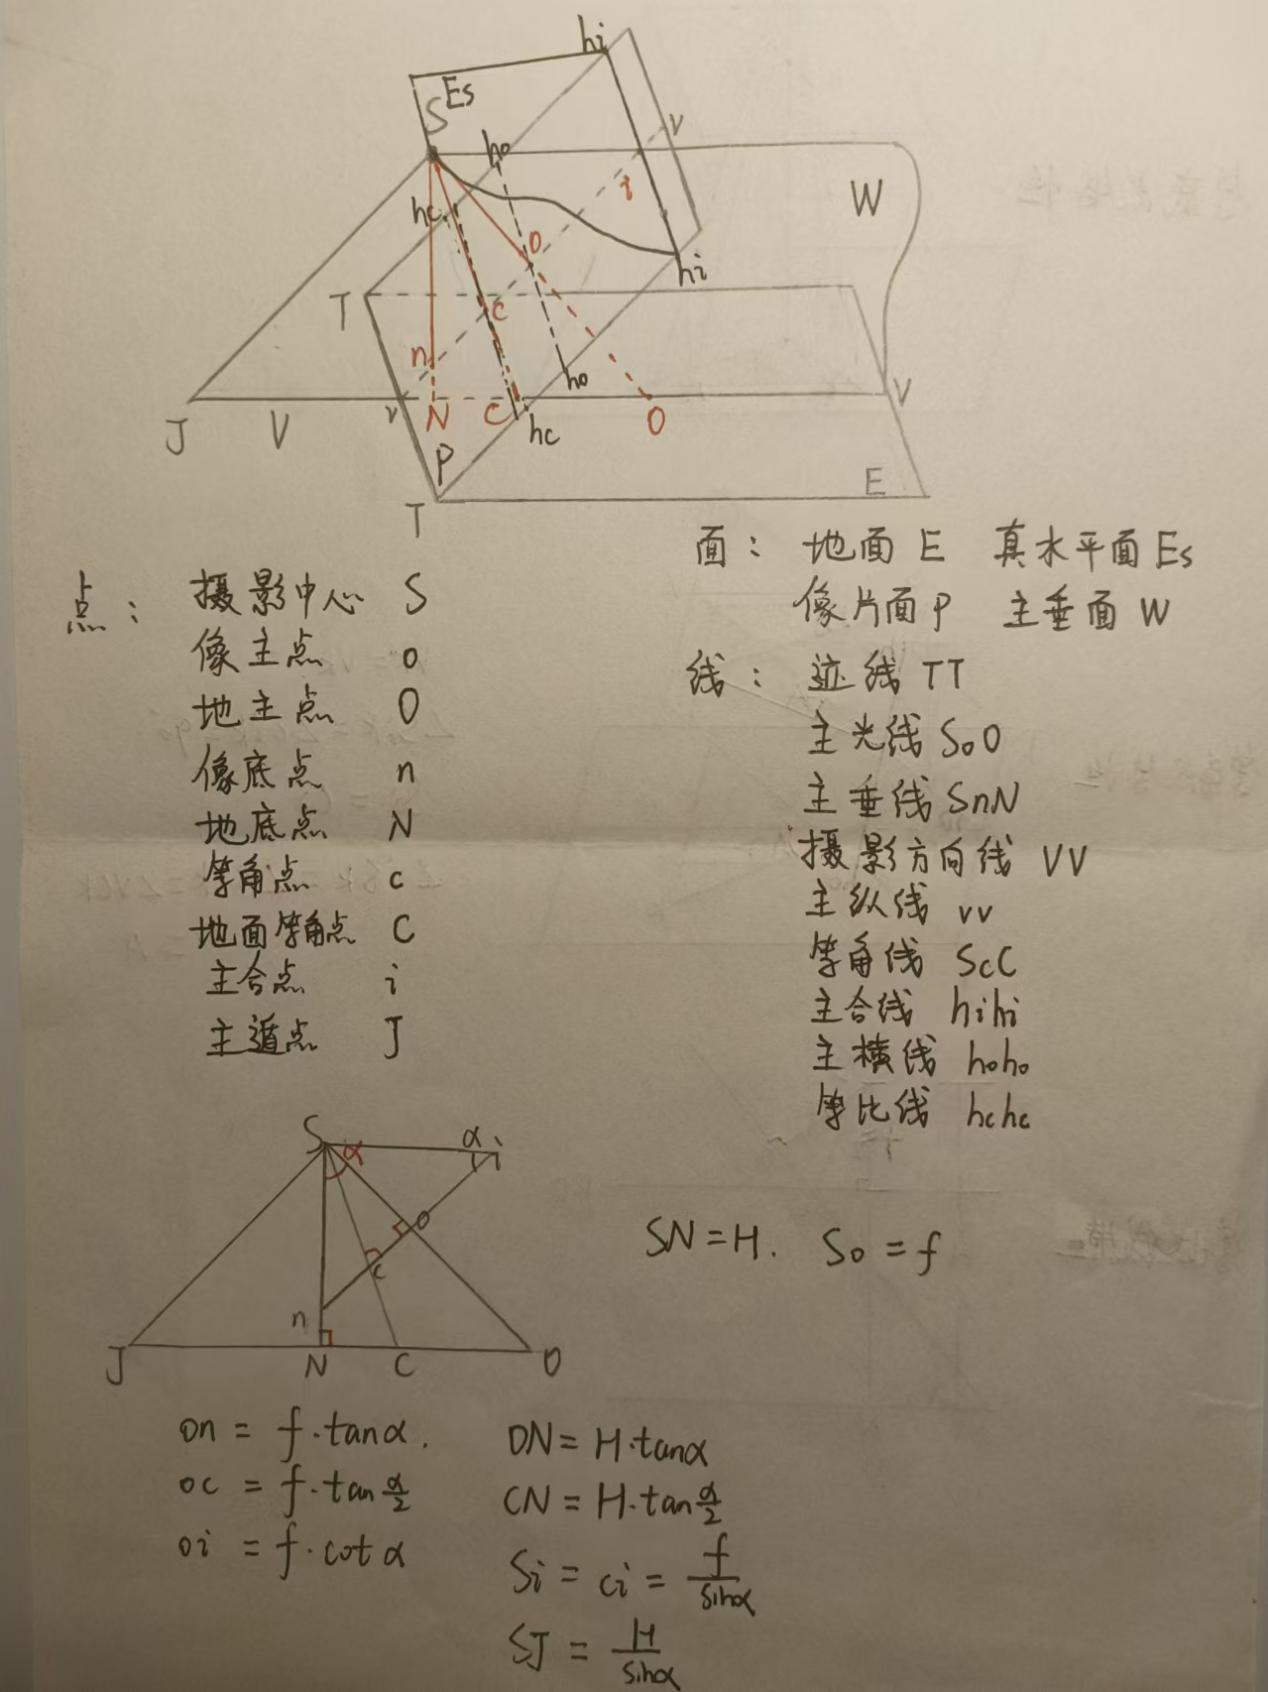 hi
Es
S
ho
v
hc
W
i
o
hi
T
c
n
ho
J
V
v
N
C
hc
O
V
P
E
T
面： 地面 E 真水平面 Es
像片面 P 主垂面 W
点： 摄影中心 S
像主点 o
地主点 O
像底点 n
地底点 N
等角点 c
地面等角点 C
主合点 i
主遁点 J
线： 迹线 TT
主光线 SoO
主垂线 SnN
摄影方向线 VV
主纵线 vv
等角线 ScC
主合线 hihi
主横线 hoho
等比线 hchc
S
α
α
i
o
c
n
J
N
C
O
SN=H. So=f
on = f·tanα.
oc = f·tan α/2
oi = f·cot α
ON = H·tanα
CN = H·tan α/2
Si = ci = f/sinα
SJ = H/sinα